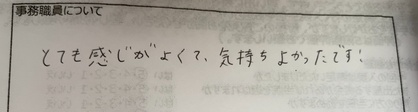 事務職員について
とても感じがよくて、気持ちよかったです!